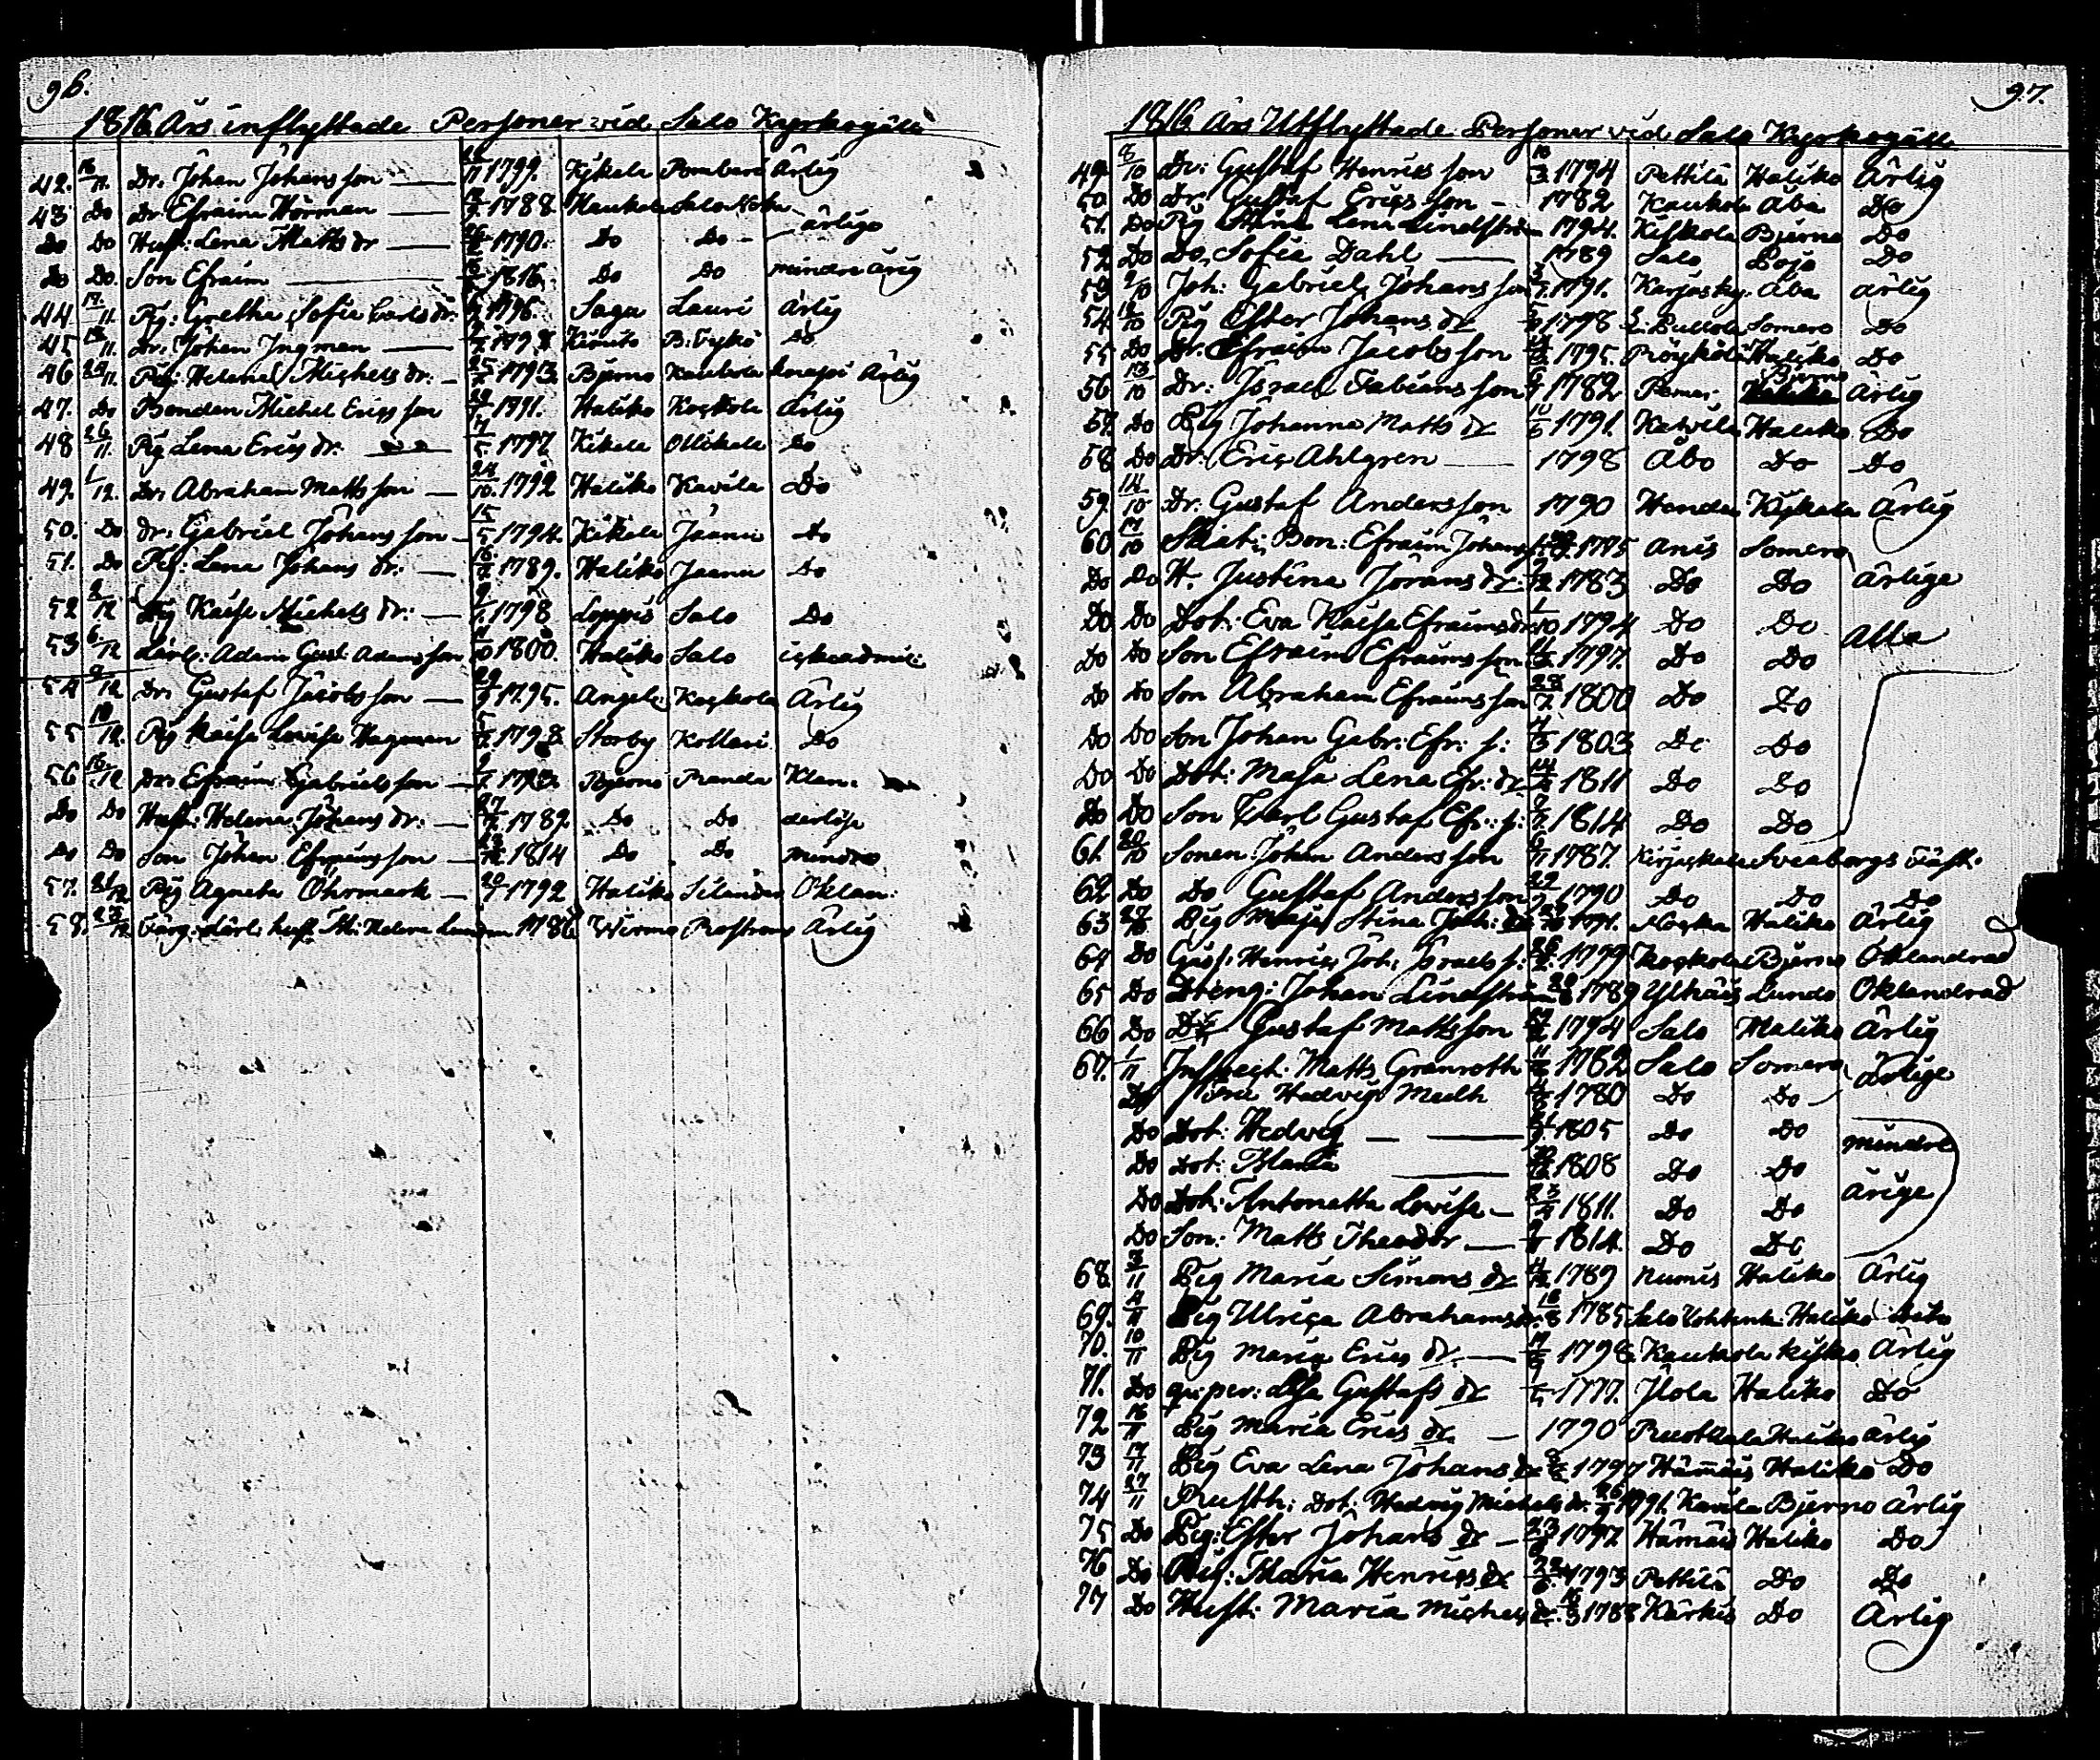 96.
1816 Års inflyttade Personer vid Salo Kyrkogäll
42. 16/11. Dr. Johan Johansson — 1799. Kijkala Pombari Ärlig
43 Do Dr Efraim Hörman — 1788 Haukola Salo
Do Do Hust: Lena Matts dr — 1790. Do Do — ärlige
Do Do. Son Efraim — 1816. Do Do mindre årig
44 17/11. Pig: Gretha Sofia Carls dr. 1796. Sagu Lauri Ärlig
45 18/11. Dr. Johan Ingman — 1798 Kimito B. Tykö Do
46 24/11. Pig: Helena Michels dr: — 25 1793. Bjerno Kaukola Ärlig
47. Do Bonden Michel Ericsson 1771. Haliko Koskola Ärlig
48 26/11. Pig Lena Erics dr: 17/5 1797 Kikala Ollikala Do
49. 1/12. Dr. Abraham Mattsson — 24/10. 1792 Haliko Kavila Do
50. Do Dr. Gabriel Johansson — 15/5 1794. Kikala Jaana Do
51. Do Pig: Lena Johans dr: — 1789. Haliko Jaana Do
52 2/12 Pig Kaisa Michels dr: — 1798 Loppis Salo Do
53 6/12 Lärl: Adam Gust: Adamsson 1800. Haliko Salo
54 9/12 Dr. Gustaf Jacobsson — 1795. Angela Koskola Ärlig
55 10/12. Pig Kaisa Lovisa Hagman 1798 Storby Kollari Do
56 16/12 Dr. Efraim Gabrielsson — 1793. Bjerno Pranda Klan:
Do Do Hust: Helena Johans dr: — 27 1782 Do Do derlösa
Do Do Son Johan Efraimsson — 1814 Do Do mindre
57. 21/12 Pig Agneta Öhrmark — 20 1792 Haliko Silander Oklan:
58. 23/12 Färg: Lärl. hust. M: Helena 1786 Wirmo Prostrans Ärlig
97.
1816 Års Utflyttade Personer vid Salo Kyrkogäll
49. 8/10 Dr: Gustaf Henricsson 10/3 1794 Pettilä Haliko Ärlig
50. Do Dr. Gustaf Ericsson — 1782 Kaukola Åbo Do
51. Do Pig Stina Lena Lindström 1794. Kiskola Bjerno Do
52 Do Do. Sofia Dahl — 1789 Salo Pojo Do
53 9/10 Joh: Gabriel Johansson 1791. Karjasky: Åbo ärlig
54. 12/10 Pig Ester Johans dr 1798 Pullola Somero Do
55 Do Dr. Efraim Jacobsson 1795. Röykölä Haliko Do
56 13/10 Dr: Israel Fabiansson 1782 Pemar Bjerno Ärlig
57. Do Pig Johanna Matts dr 1791. Katvila Haliko Do
58 Do Dr. Eric Ahlgren — 1798 Åbo Do Do
59. 14/10 Dr. Gustaf Andersson 1790 Hendes Kijkala Ärlig
60 17/10 Skat: Bon: Efraim Johansson 1775 Anis Somero
Do Do H. Justina Jörans dr: 1783 Do Do Ärlige
Do Do Dot: Eva Kaisa Efraims dr. 1/10 1794 Do Do Alla
Do Do Son Efraim Efraimsson 1797. Do Do
Do Do Son Abraham Efraimsson 28/7. 1800 Do Do
Do Do Son Johan Gabr: Efr: s: 4/3 1803 Do Do
Do Do Dot: Maja Lena Efr: dr. 14 1811 Do Do
Do Do Son Karl Gustaf Efr: s: 1814 Do Do
61. 20/10 Sonen Johan Andersson 1787. Kirjaskala Sveaborgs Fäst.
62 Do Do Gustaf Andersson 29 1790 Do Do Do
63 27/10 Pig Maja Stina Joh: dr 1771. Haliko Ärlig
64 Do Gus: Henric Joh: Israels s: 26 1799 Koskola Bjerno Oklandrad
65 Do Dreng: Johan Lindström 1789 Ylhäis Lundo Oklandrad
66 Do Dr Gustaf Mattsson 1794 Salo Haliko Ärlig
67. 1/11 Inspect: Matts Granroth 11 1762 Salo Somero Ärlige
Do Fru Hedvig Medh 1780 Do Do
Do Dot: Hedvig — 1805 Do Do mindre
Do Dot: Maria — 1808 Do Do
Do Dot: Antonetta Lovisa — 1811. Do Do årige
Do Son: Matts Theodor — 1814. Do Do
68. 3/11 Pig Maria Simons dr 1789 Numis Haliko Ärlig
69. 4/11 Pig Ulrica Abrahams dr. 1785 Salo Haliko Dito
70. 10/11 Pig Maria Erics dr. — 1798. Kaukola Kisko Ärlig
71. Do qv: per: Lisa Gustafs dr 1777. Ilola Haliko Do
72 16/11 Pig Maria Erics dr. — 1790 Ruotsala Haliko ärlig
73 17/11 Pig Eva Lena Johans dr 1797 Hämäis Haliko Do
74 27/11 Rusth: Dot: Hedvig Michels dr. 1791. Kavila Bjerno Ärlig
75 Do Pig: Ester Johans dr — 23 1792 Hämäis Haliko Do
76 Do Pig: Maria Henrics dr 1793 Pettilä Do Do
77 Do Hust: Maria Michels dr. 16/3 1788 Kärkis Do Ärlig